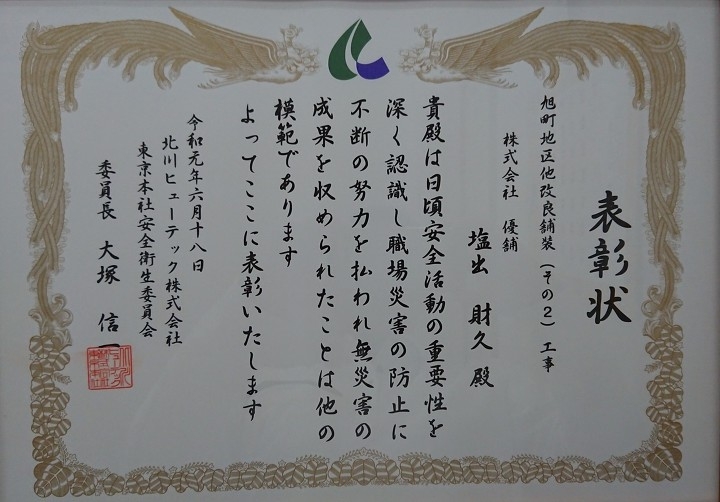 表彰状
旭町地区他改良舗装(その2)工事
株式会社 優舗
塩出 財久 殿
貴殿は日頃安全活動の重要性を
深く認識し職場災害の防止に
不断の努力を払われ無災害の
成果を収められたことは他の
模範であります
よってここに表彰いたします
令和元年六月十八日
北川ヒューテック株式会社
東京本社安全衛生委員会
委員長 大塚 信一